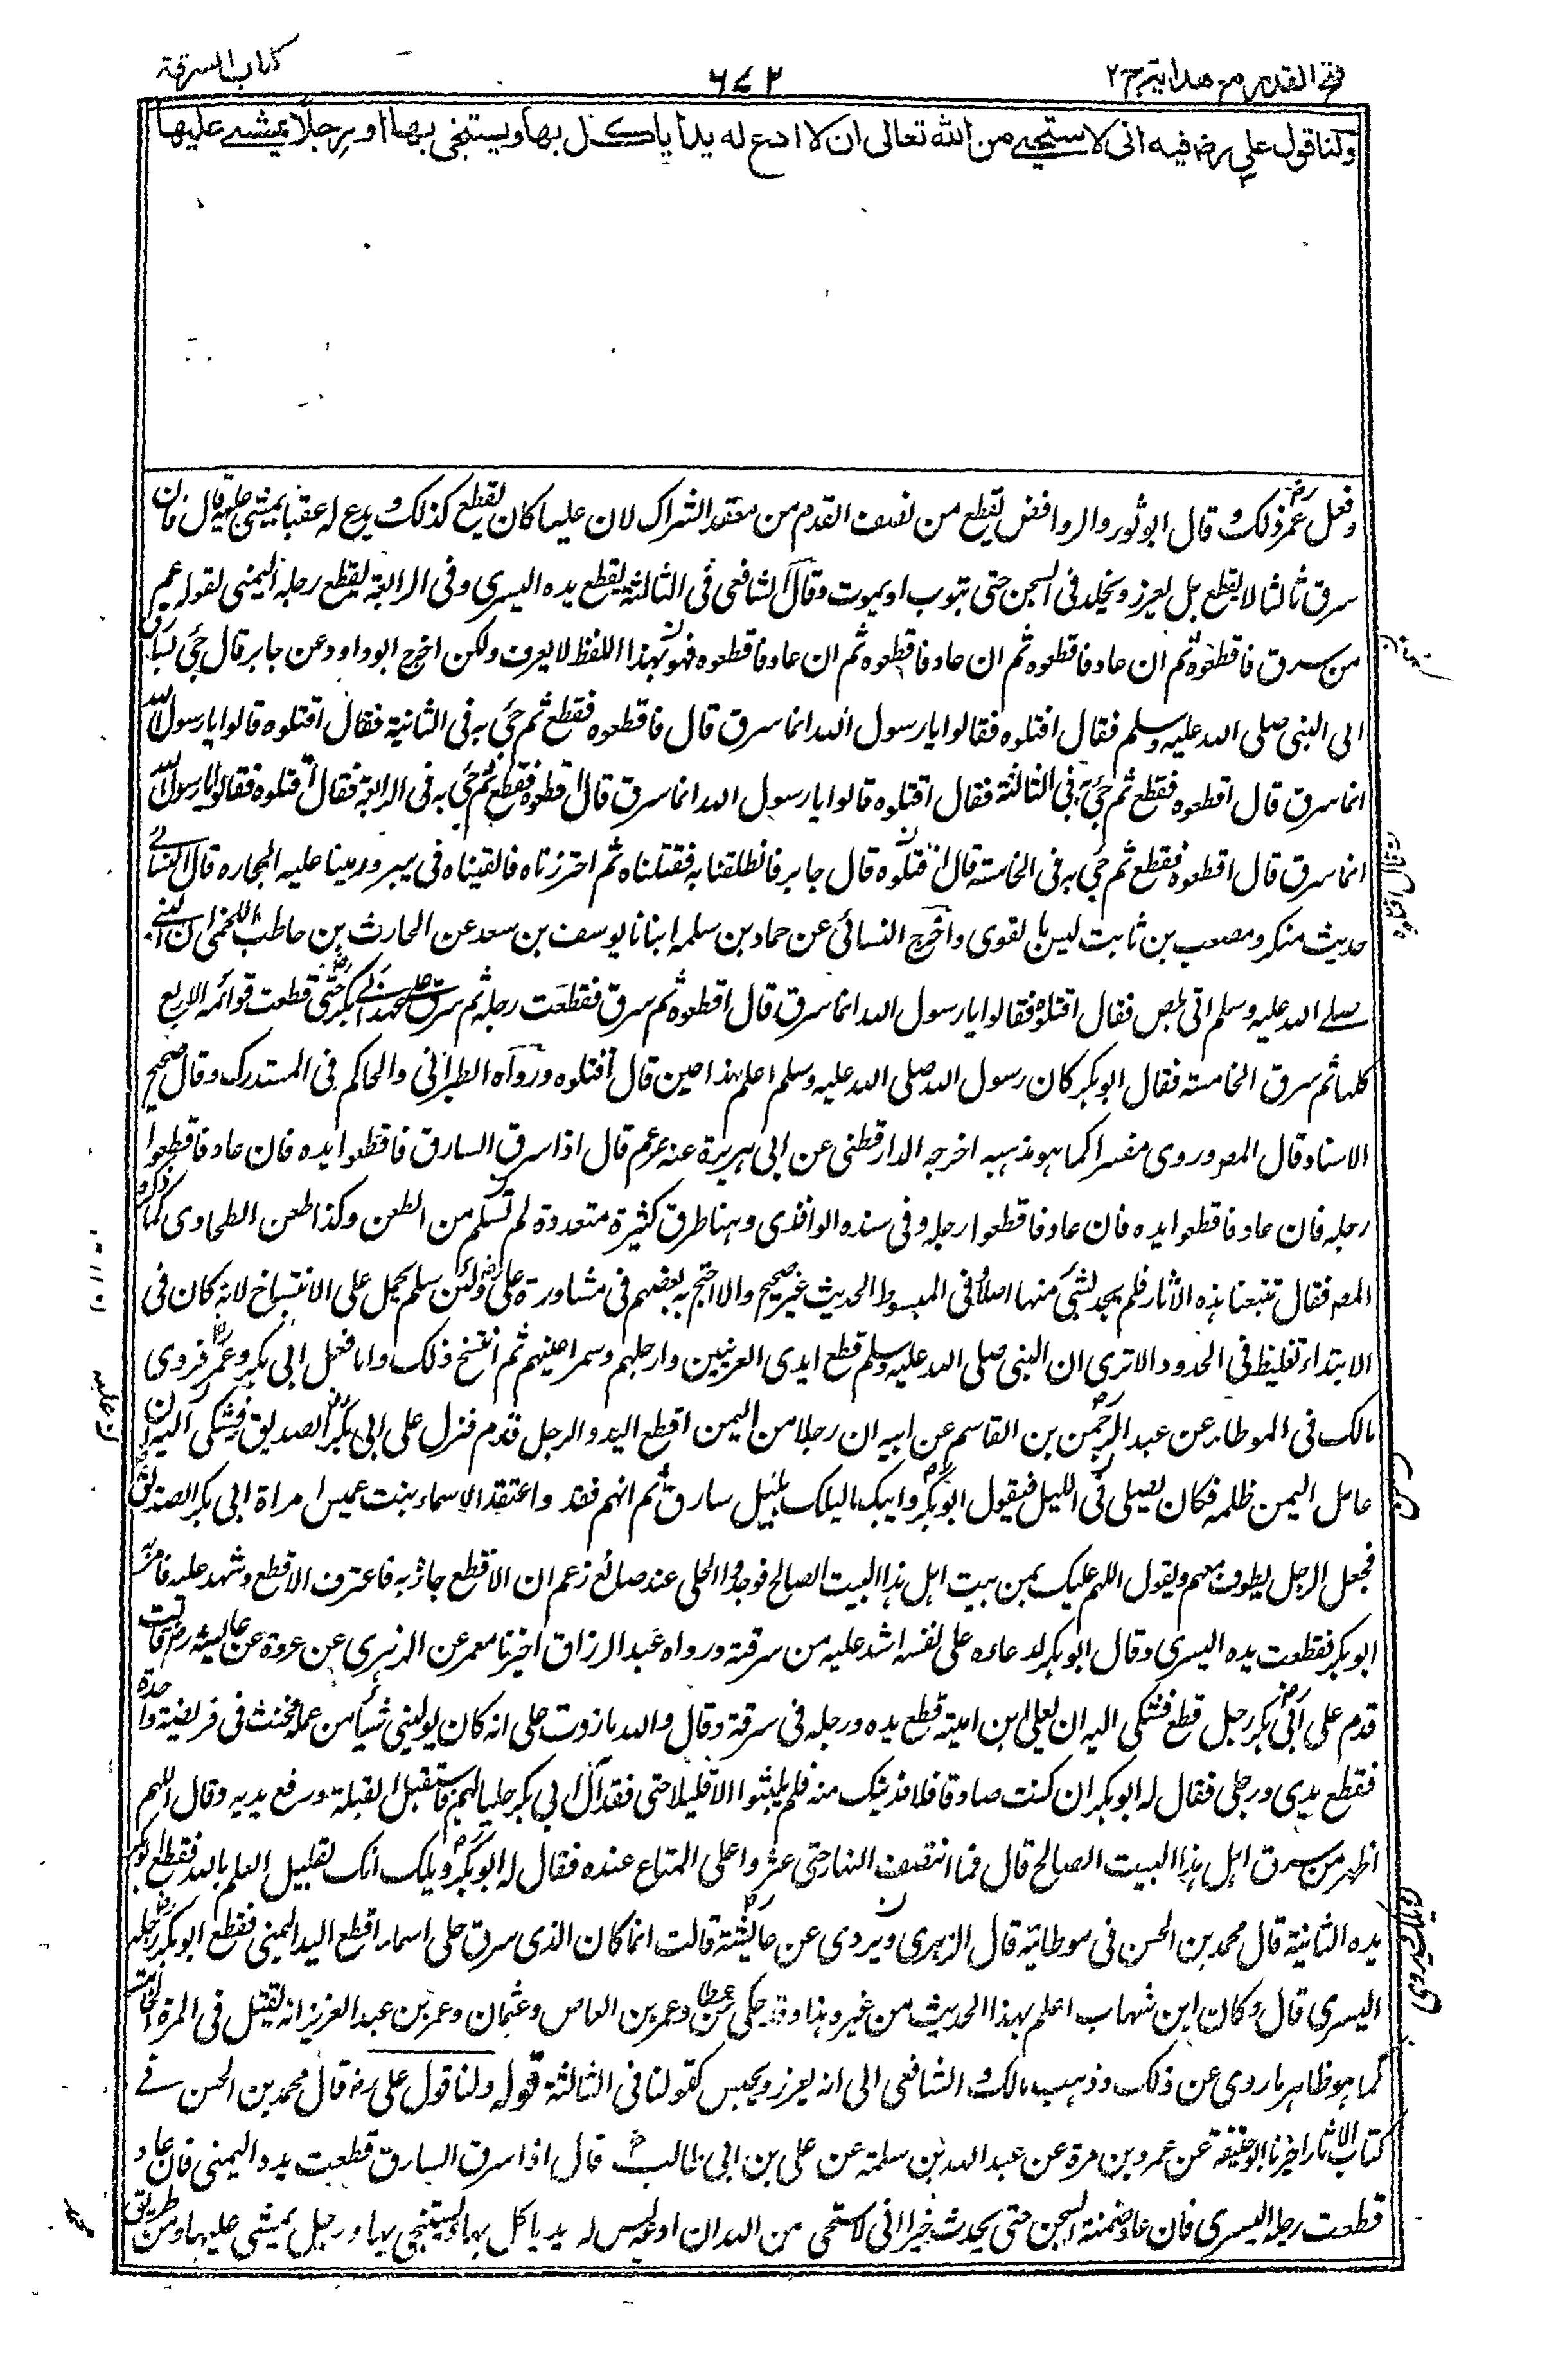 فتح القدير مع هدايه ج ٢
٦٧٢
كتاب السرقة
ولنا قول علي رضي فيه انى لاستحيے من الله تعالى ان لا ادع له يدا ياكل بها ويستنجى بها او رجلا يمشے عليها
وفعل عمر رض ذلك وقال ابو ثور والروافض يقطع من نصف القدم من معقد الشراك لان عليا كان يقطع كذلك ويدع له عقبا يمشي عليها قال فان
سرق ثالثا لا يقطع بل يعزر ويخلد فى السجن حتى يتوب او يموت وقال الشافعى فى الثالثة يقطع يده اليسرى وفى الرابعة يقطع رجله اليمنى لقوله عم
من سرق فاقطعوه ثم ان عاد فاقطعوه ثم ان عاد فاقطعوه ثم ان عاد فاقطعوه فهو بهذا اللفظ لا يعرف ولكن اخرج ابو داود عن جابر قال جئ بسارق
الى النبى صلى الله عليه وسلم فقال اقتلوه فقالوا يا رسول الله انما سرق قال فاقطعوه فقطع ثم جئ به فى الثانية فقال اقتلوه قالوا يا رسول الله
انما سرق قال اقطعوه فقطع ثم جئ به فى الثالثة فقال اقتلوه قالوا يا رسول الله انما سرق قال اقطعوه فقطع ثم جئ به فى الرابعة فقال اقتلوه فقالوا يا رسول الله
انما سرق قال اقطعوه فقطع ثم جئ به فى الخامسة قال اقتلوه قال جابر فانطلقنا به فقتلناه ثم اجتررناه فالقيناه فى بير ورمينا عليه الحجاره قال النسائے
حديث منكر ومصعب بن ثابت ليس بالقوى واخرج النسائى عن حماد بن سلمه انبانا يوسف بن سعد عن الحارث بن حاطب اللخمى ان النبے
صلے الله عليه وسلم اتى بلص فقال اقتلوه فقالوا يا رسول الله انما سرق قال اقطعوه ثم سرق فقطعت رجله ثم سرق على عهد ابے بكر رض حتى قطعت قوائمه الاربع
كلها ثم سرق الخامسة فقال ابو بكر كان رسول الله صلى الله عليه وسلم اعلم بهذا حين قال اقتلوه ورواه الطبرانى والحاكم فى المستدرك وقال صحيح
الاسناد قال المصر وروى مفسرا كما هو مذهبه اخرجه الدارقطنى عن ابى هريرة عنه عم قال اذا سرق السارق فاقطعوا يده فان عاد فاقطعوا
رجله فان عاد فاقطعوا يده فان عاد فاقطعوا رجله وفى سنده الواقدى وهنا طرق كثيرة متعددة لم تسلم من الطعن وكذا طعن الطحاوى كما ذكره
المصر فقال تتبعنا هذه الاثار فلم نجد لشئ منها اصلا وفى المبسوط الحديث غير صحيح والا احتج به بعضهم فى مشاورة على رض ولئن سلم يحمل على الانتساخ لانه كان فى
الابتداء تغليظ فى الحدود الا ترى ان النبى صلى الله عليه وسلم قطع ايدى العرنيين وارجلهم وسمر اعينهم ثم انتسخ ذلك واما فعل ابى بكر وعمر رض فروى
مالك فى الموطاء عن عبد الرحمن بن القاسم عن ابيه ان رجلا من اليمن اقطع اليد والرجل قدم فنزل على ابى بكر رض الصديق فشكى اليه ان
عامل اليمن ظلمه فكان يصلى فى الليل فيقول ابو بكر وابيك ما ليلك بليل سارق ثم انهم فقدوا عقدا لاسماء بنت عميس امراة ابى بكر الصديق
فجعل الرجل يطوف معهم ويقول اللهم عليك بمن بيت اهل هذا البيت الصالح فوجدوا الحلى عند صائغ زعم ان الاقطع جاءه به فاعترف الاقطع وشهد عليه فامر به
ابو بكر فقطعت يده اليسرى وقال ابو بكر لدعاءه على نفسه اشد عليه من سرقته ورواه عبد الرزاق اخبرنا معمر عن الزهرى عن عروة عن عايشه رض قالت
قدم على ابى بكر رض رجل قطع فشكى اليه ان يعلى ابن امية قطع يده ورجله فى سرقة وقال والله ما زدت على انه كان يولينى شيئا من عمله فخنث فى فريضة واحدة
فقطع يدى ورجلى فقال له ابو بكر ان كنت صادقا فلاقيدنك منه فلم يلبثوا الا قليلا حتى فقد آل ابى بكر حليا لهم فاستقبل القبلة ورفع يديه وقال اللهم
اظهر من سرق اهل هذا البيت الصالح قال فما انتصف النهار حتى عثروا على المتاع عنده فقال له ابو بكر رض ويلك انك لقليل العلم بالله فقطع ابو بكر
يده الثانية قال محمد بن الحسن فى موطائه قال الزهرى ويروى عن عائيشة قالت انما كان الذى سرق حلى اسماء اقطع اليد اليمنى فقطع ابو بكر رض رجله
اليسرى قال وكان ابن شهاب اعلم بهذا الحديث من غيره هذا وقد حكى عن عطا وعمر بن العاص وعثمان وعمر بن عبد العزيز انه يقتل فى المرة الخامسة
كما هو ظاهر ما روى عن ذلك وذهب مالك والشافعى الى انه يعزر ويحبس كقولنا فى الثالثة قوله ولنا قول على رض قال محمد بن الحسن فے
كتاب الاثار اخبرنا ابو حنيفة عن عمرو بن مرة عن عبد الله بن سلمة عن على بن ابى طالب رض قال اذا سرق السارق قطعت يده اليمنى فان عاد
قطعت رجله اليسرى فان عاد ضمنته السجن حتى يحدث خيرا انى لاستحى من الله ان ادعه ليس له يد ياكل بها ويستنجى بها ورجل يمشى عليها ومن طريق